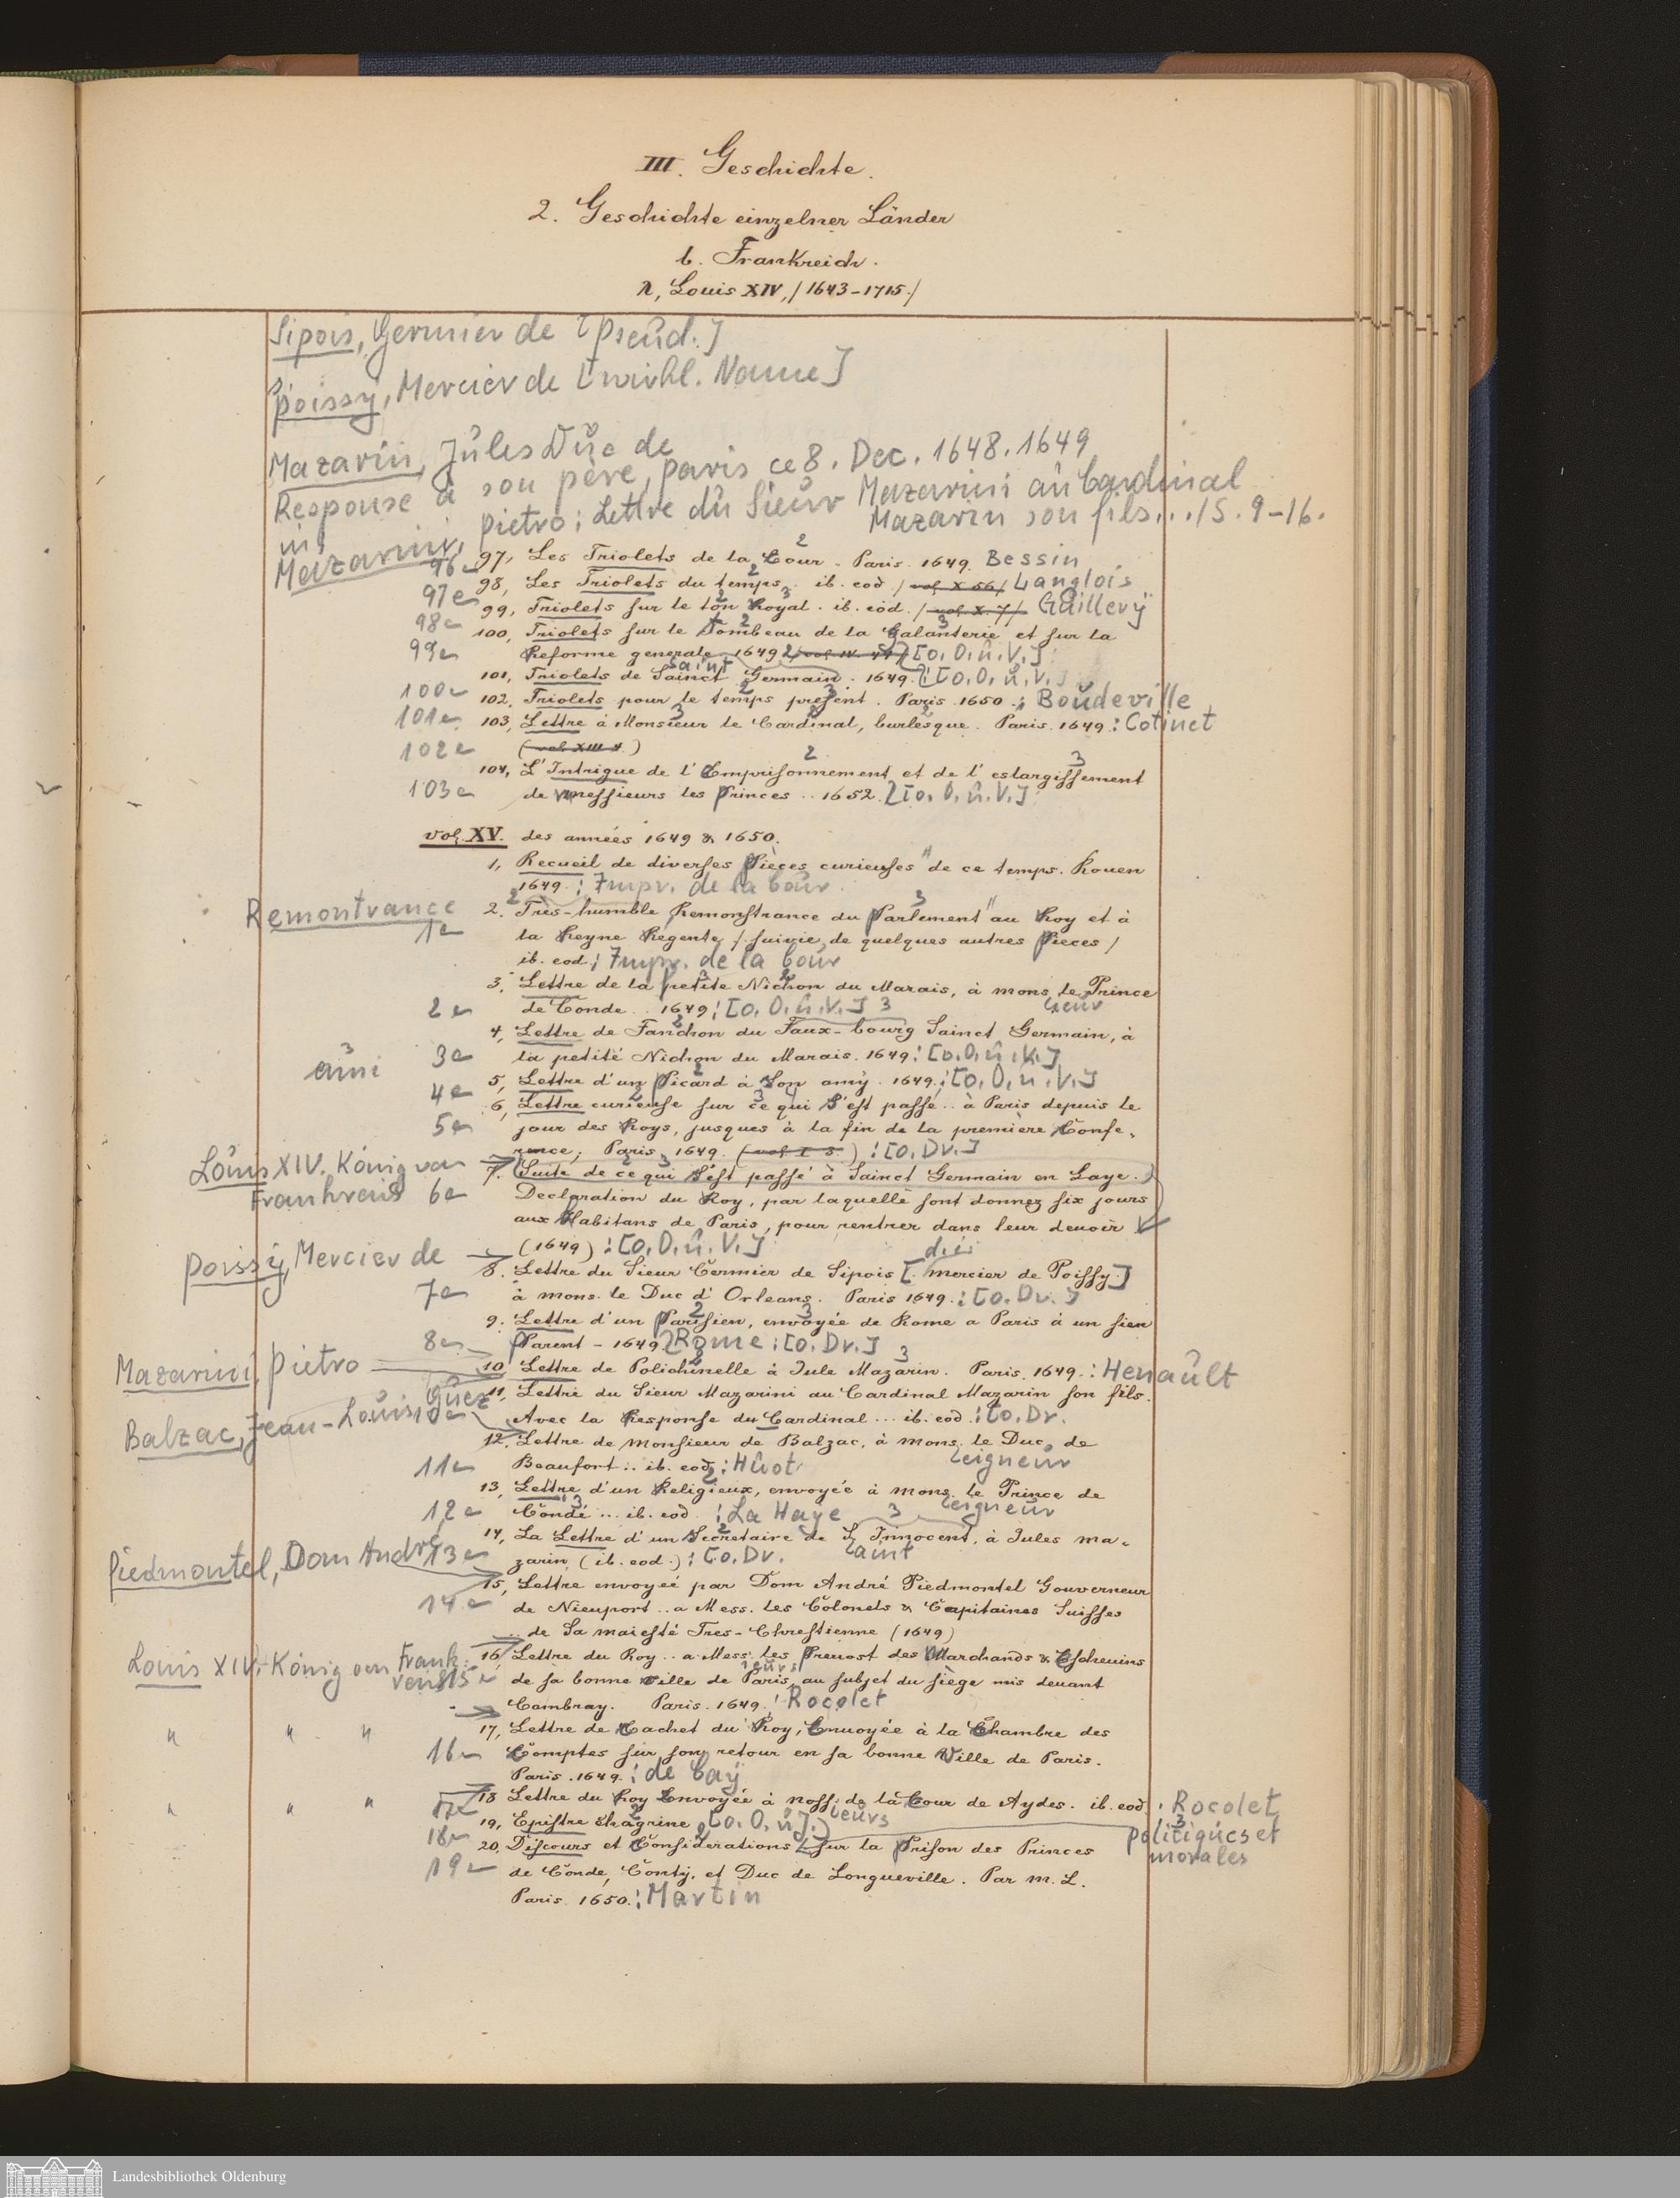 III. Geschichte.
2. Geschichte einzelner Länder
b. Frankreich.
n, Louis XIV, /1643-1715./
Sipois, Germier de [Pseud.]
Poissy, Mercier de [wirkl. Name]
Mazarin, Jules Duc de
Response à son père, Paris ce 8. Dec. 1648. 1649
in:
Mazarini, Pietro: Lettre du Sieur Mazarini au Cardinal
Mazarin son fils... /S. 9-16.
96e 97, Les Triolets de la Cour. Paris. 1649. Bessin
97e 98, Les Triolets du temps. ib. eod /vol X 56/ Langlois
98e 99, Triolets sur le ton Royal. ib. eod. /vol. X. 7/ Guillery
99e 100, Triolets sur le Tombeau de la Galanterie et sur la
Reforme generale 1649 [o. O. u. V.]
Saint
100e 101, Triolets de Sainct Germain. 1649. : [o. O. u. V.]
101e 102, Triolets pour le temps present. Paris 1650. : Boudeville
102e 103, Lettre à Monsieur le Cardinal, burlesque. Paris. 1649 : Cotinet
(vol XIII 4.)
103e 104, L'Intrigue de l'Emprisonnement et de l'eslargissement
de messieurs les Princes .. 1652. [o. O. u. V.]
vol. XV. des années 1649 & 1650.
1, Recueil de diverses Pièces curieuses " de ce temps. Rouen
1649. : Impr. de la Cour.
Remontrance
1e 2. Très-humble Remonstrance du Parlement " au Roy et à
la Reyne Regente / suivie de quelques autres Pieces /
ib. eod : Impr. de la Cour
2e 3, Lettre de la petite Nichon du Marais, à mons. le Prince
sieur
de Conde .. 1649 : [o. O. u. V.]
3e 4, Lettre de Fanchon du Faux-bourg Sainct Germain, à
la petité Nichon du Marais. 1649 : [o. O. u. V.]
ami
4e 5, Lettre d'un Picard à Son amy. 1649. : [o. O. u. V.]
5e 6, Lettre curieuse sur ce qui S'est passé .. à Paris depuis le
jour des Roys, jusques à la fin de la première Confe-
rence; Paris, 1649. (vol I 5.) : [o. Dr.]
Louis XIV. König von
Frankreich 6e
7. (Suite de ce qui S'est passé à Sainct Germain en Laye.)
Declaration du Roy, par laquelle sont donnez six jours
aux Habitans de Paris, pour rentrer dans leur devoir
(1649) : [o. O. u. V.]
Poissy, Mercier de
7e 8. Lettre du Sieur Cermier de Sipois [. mercier de Poissy.]
d.i.
à mons. le Duc d'Orleans. Paris 1649. : [o. Dr.]
8e 9. Lettre d'un Parisien, envoyée de Rome a Paris à un sien
Parent - 1649. Rome : [o. Dr.]
10 Lettre de Polichinelle à Jule Mazarin. Paris. 1649. : Henault
Mazarini, Pietro
11, Lettre du Sieur Mazarini au Cardinal Mazarin son fils.
Avec la Response du Cardinal ... ib. eod. : [o. Dr.
Balzac, Jean-Louis Guez
11e 12, Lettre de Monsieur de Balzac, à mons. le Duc de
seigneur
Beaufort .. ib. eod : Huot
12e 13, Lettre d'un Religieux, envoyée à mons. le Prince de
seigneur
Condé ... ib. eod : La Haye
13e 14, La Lettre d'un Secretaire de S. Innocent, à Jules ma-
Saint
zarin (ib. eod.) : [o. Dr.
Piedmontel, Dom André
14e 15, Lettre envoyeé par Dom André Piedmontel Gouverneur
de Nieuport .. a Mess. les Colonels & Capitaines Suisses
.. de Sa maiesté Tres-Chrestienne (1649)
Louis XIV. König von Frank-
reich 15e
16, Lettre du Roy .. a Mess. les Prevost des Marchands & Eschevins
ieurs
de sa bonne Ville de Paris, au subjet du siège mis devant
Cambray. Paris. 1649. : Rocolet
" " "
16e 17, Lettre de Cachet du Roy, Envoyée à la Chambre des
Comptes sur son retour en sa bonne Ville de Paris.
Paris. 1649. : de Cay
" " "
17e 18 Lettre du Roy Envoyée à noss. de la Cour de Aydes. ib. eod. : Rocolet
ieurs
18e 19, Epistre Chagrine [o. O. u. J.]
19e 20, Discours et Considerations sur la Prison des Princes
politiques et
morales
de Conde, Conty, et Duc de Longueville. Par M. L.
Paris. 1650. : Martin
Landesbibliothek Oldenburg